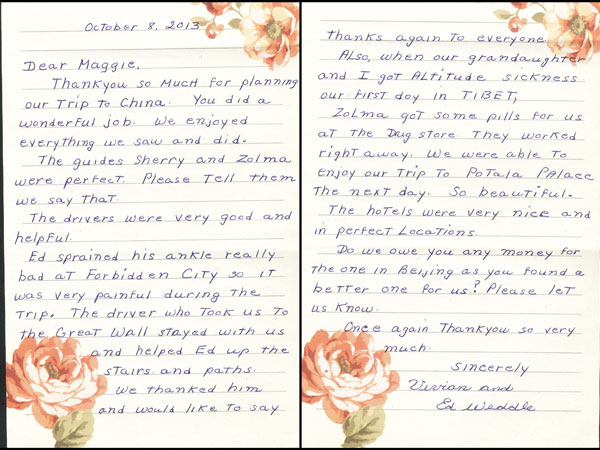 October 8, 2013
Dear Maggie,
Thankyou so much for planning
our Trip to China. You did a
wonderful job. We enjoyed
everything we saw and did.
The guides Sherry and Zolma
were perfect. Please Tell them
we say that.
The drivers were very good and
helpful.
Ed sprained his ankle really
bad at Forbidden City so it
was very painful during the
Trip. The driver who Took us To
the Great Wall stayed with us
and helped Ed up the
stairs and paths.
We thanked him
and would like To say
thanks again To everyone
Also, when our grandaughter
and I got Altitude sickness
our first day in TIBET,
Zolma got some pills for us
at the Drug store. They worked
right away. We were able To
enjoy our Trip to Potala Palace
the next day. So beautiful.
The hotels were very nice and
in perfect Locations.
Do we owe you any money for
the one in Beijing as you found a
better one for us? Please let
us know.
Once again Thankyou so very
much.
Sincerely
Vivian and
Ed Weddle